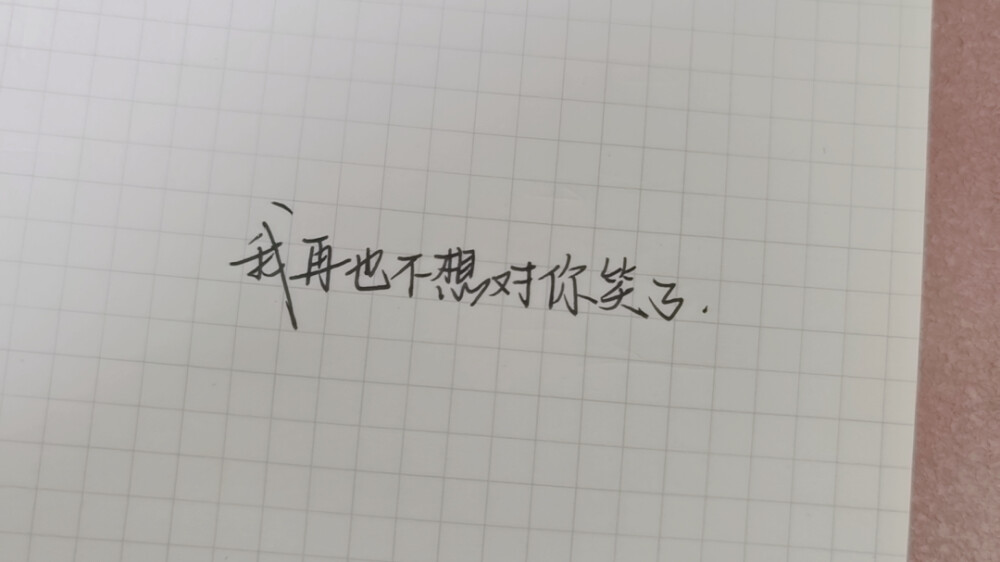 我再也不想对你笑了.